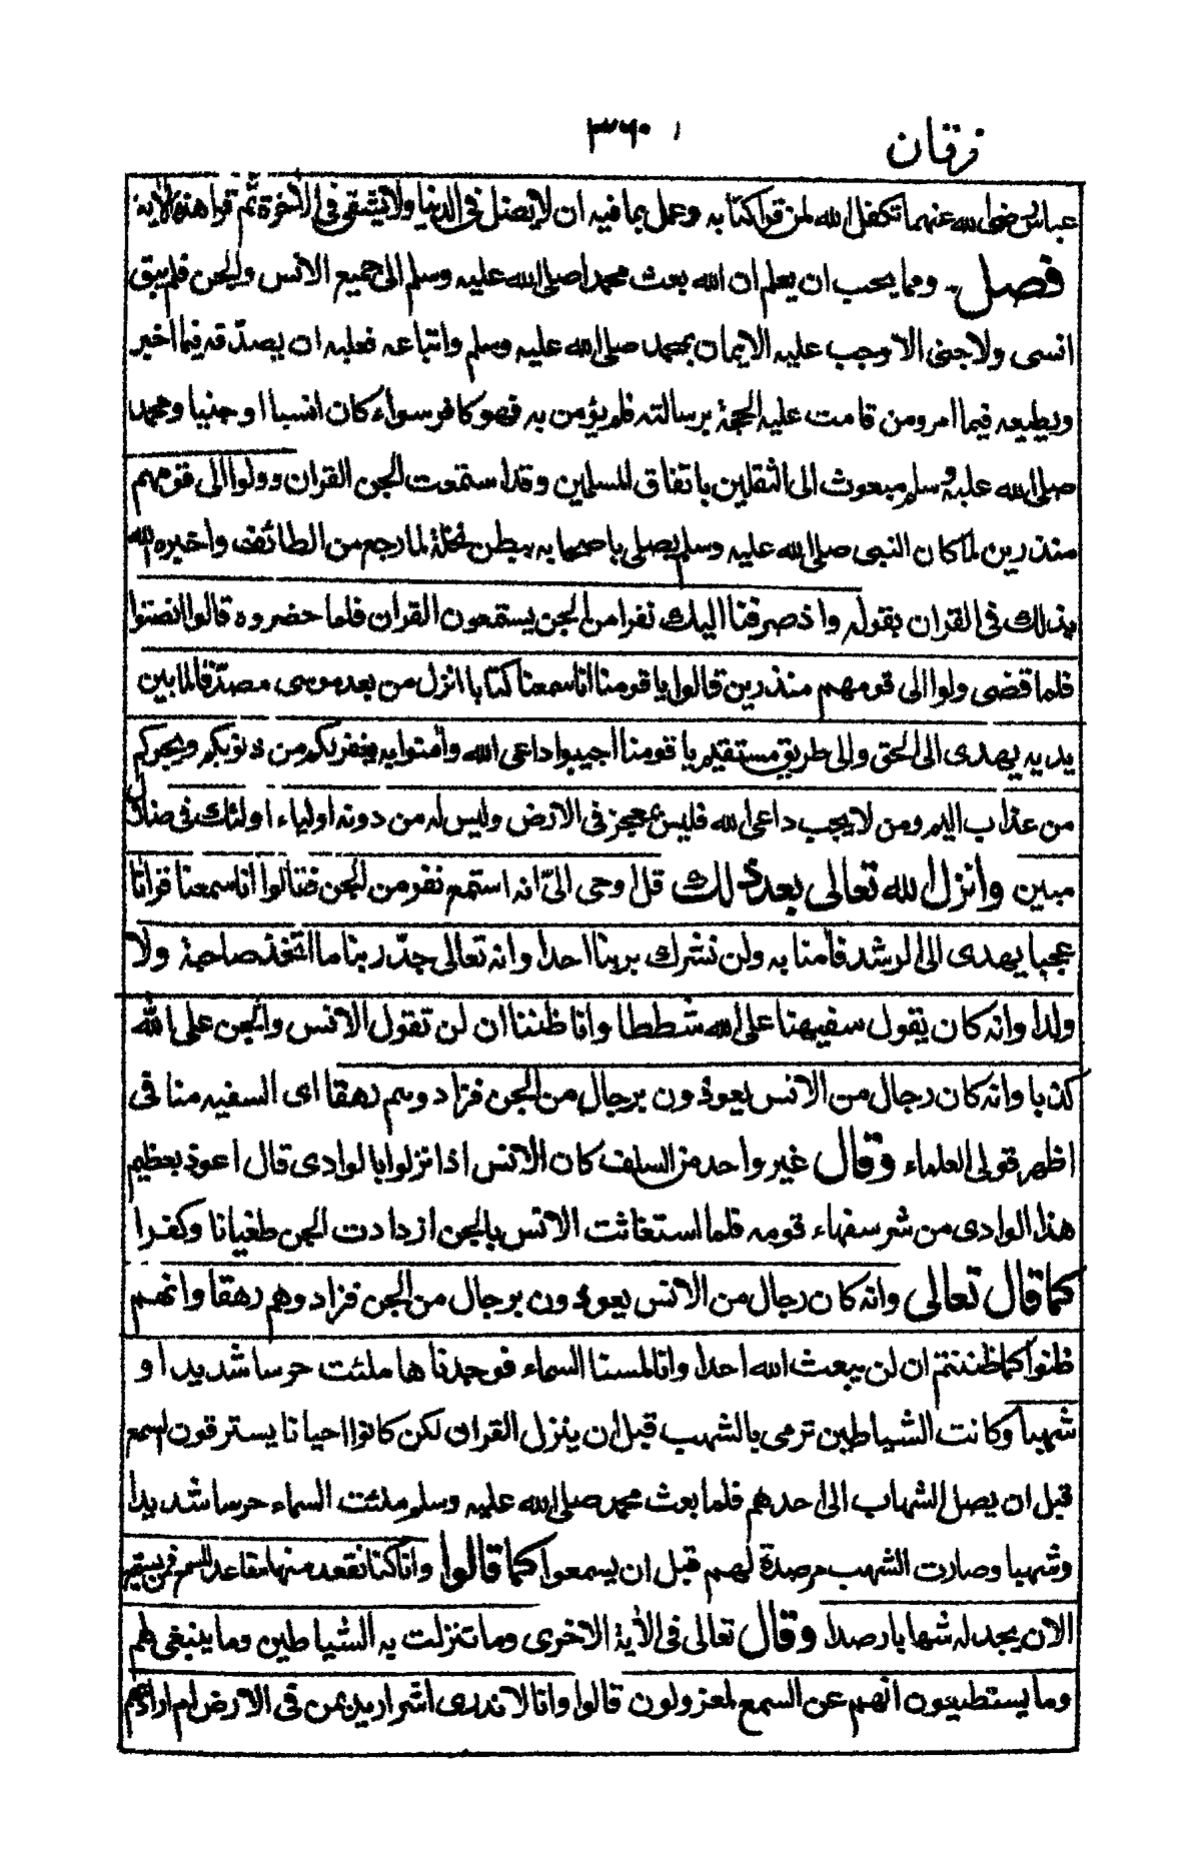 فرقان ٣٦٠
عباس رضى الله عنهما تكفل الله لمن قرا كتابه وعمل بما فيه ان لا يضل فى الدنيا ولا يشقى فى الآخرة ثم قرا هذه الآية
فصل ومما يجب ان يعلم ان الله بعث محمدا صلى الله عليه وسلم الى جميع الانس والجن فلم يبق
انسى ولا جنى الا وجب عليه الايمان بمحمد صلى الله عليه وسلم واتباعه فعليه ان يصدّقه فيما اخبر
ويطيعه فيما امر ومن قامت عليه الحجة برسالته فلم يؤمن به فهو كافر سواء كان انسيا او جنيا ومحمد
صلى الله عليه وسلم مبعوث الى الثقلين باتفاق المسلمين وقد استمعت الجن القران وولوا الى قومهم
منذرين لما كان النبى صلى الله عليه وسلم يصلى باصحابه ببطن نخلة لما رجع من الطائف واخبره الله
بذلك فى القران بقوله واذ صرفنا اليك نفرا من الجن يستمعون القران فلما حضروه قالوا انصتوا
فلما قضى ولوا الى قومهم منذرين قالوا يا قومنا انا سمعنا كتابا انزل من بعد موسى مصدّقا لما بين
يديه يهدى الى الحق والى طريق مستقيم يا قومنا اجيبوا داعى الله وآمنوا به يغفر لكم من ذنوبكم ويجركم
من عذاب اليم ومن لا يجب داعى الله فليس بمعجز فى الارض وليس له من دونه اولياء اولئك فى ضلال
مبين وانزل الله تعالى بعد ذلك قل اوحى الىّ انه استمع نفر من الجن فقالوا انا سمعنا قرآنا
عجبا يهدى الى الرشد فآمنا به ولن نشرك بربنا احدا وانه تعالى جدّ ربنا ما اتخذ صاحبة ولا
ولدا وانه كان يقول سفيهنا على الله شططا وانا ظننا ان لن تقول الانس والجن على الله
كذبا وانه كان رجال من الانس يعوذون برجال من الجن فزادوهم رهقا اى السفيه منا فى
اظهر قولى العلماء وقال غير واحد من السلف كان الانس اذا نزلوا بالوادى قال اعوذ بعظيم
هذا الوادى من شر سفهاء قومه فلما استغاثت الانس بالجن ازدادت الجن طغيانا وكفرا
كما قال تعالى وانه كان رجال من الانس يعوذون برجال من الجن فزادوهم رهقا وانهم
ظنوا كما ظننتم ان لن يبعث الله احدا وانا لمسنا السماء فوجدناها ملئت حرسا شديدا و
شهبا وكانت الشياطين ترمى بالشهب قبل ان ينزل القران لكن كانوا احيانا يسترقون السمع
قبل ان يصل الشهاب الى احدهم فلما بعث محمد صلى الله عليه وسلم ملئت السماء حرسا شديدا
وشهبا وصارت الشهب مرصدة لهم قبل ان يسمعوا كما قالوا وانا كنا نقعد منها مقاعد للسمع فمن يستمع
الان يجد له شهابا رصدا وقال تعالى فى الآية الاخرى وما تنزلت به الشياطين وما ينبغى لهم
وما يستطيعون انهم عن السمع لمعزولون قالوا وانا لا ندرى اشر اريد بمن فى الارض ام اراد بهم